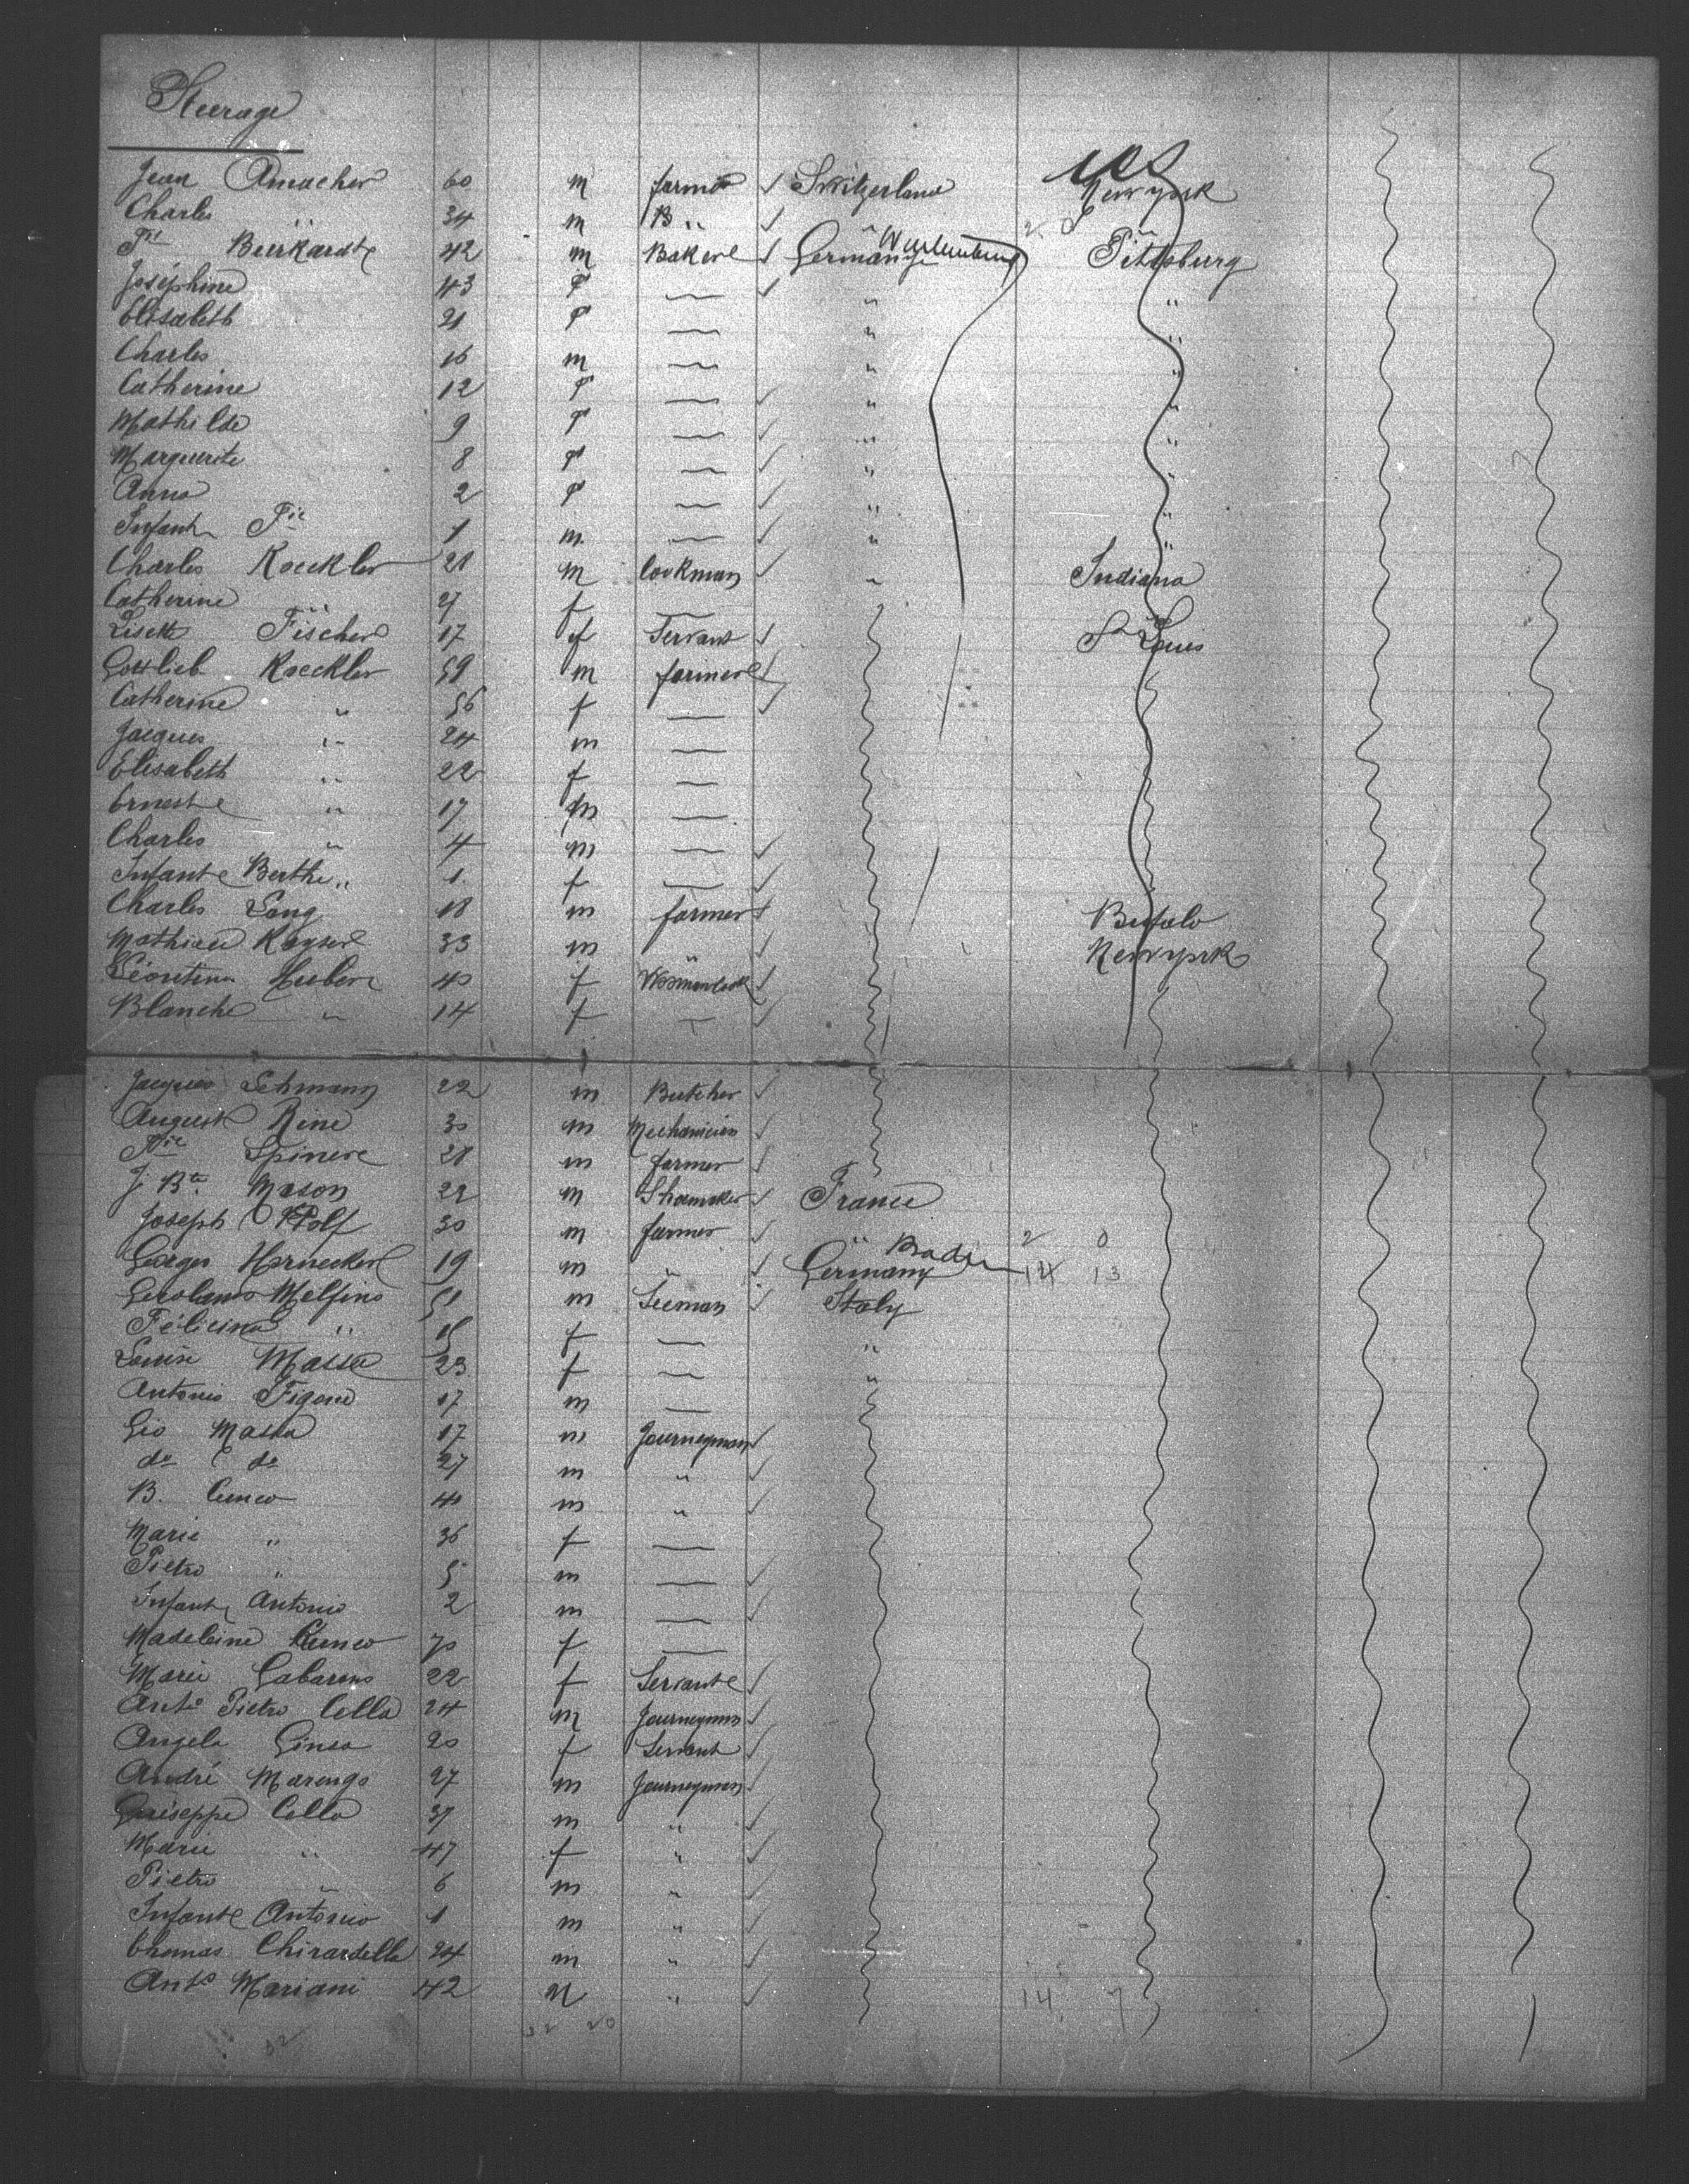 Steerage
Jean Amacher 60 m farmer ✓ Switzerland New york
Charles " 34 m B " ✓ " "
Fie Burkardt 42 m Baker ✓ Germany Wurtemberg Pittsburg
Joséphine 43 f — ✓ " "
Elisabeth 21 f — " "
Charles 16 m — " "
Catherine 12 f — ✓ " "
Mathilde 9 f — ✓ " "
Marguerite 8 f — ✓ " "
Anna 2 f — ✓ " "
Infant Fie 1 m — ✓ " "
Charles Raeckler 21 m Cookman ✓ " Indiana
Catherine " 27 f —
Lisette Fischer 17 f Servant ✓ St Louis
Gottlieb Raeckler 59 m farmer ✓
Catherine " 56 f — ✓
Jacques " 24 m —
Elisabeth " 22 f —
Ernest " 17 m —
Charles " 4 m — ✓
Infant Berthe " 1 f — ✓
Charles Lang 18 m farmer ✓ Bufalo
Mathieu Kayser 33 m " ✓ New york
Léontine Huber 40 f ✓
Blanche " 14 f — ✓
Jacques Lehmann 22 m Butcher ✓
August Rine 30 m Mechanicien ✓
Spinere 21 m farmer ✓
J. Bte Mason 22 m Shoemaker ✓ France
Joseph Wolf 30 m farmer ✓ " 2 0
Georges Hornecker 19 m " ✓ Germany Baden 14 13
Gerolamo Melfino 51 m Seeman ✓ Italy
Félicina " f — "
Louise Massa 23 f — "
Antonio Figone 17 m —
Gio Massa 17 m Journeyman ✓
do do 27 m " ✓
B. Cuneo 40 m " ✓
Marie " 36 f —
Pietro " 5 m — ✓
Infant Antonio 2 m — ✓
Madeleine Cuneo 70 f —
Marie Gabareno 22 f Servante ✓
Anto Pietro Cella 24 m Journeyman ✓
Angela Ginea 20 f Servant ✓
André Marengo 27 m Journeyman ✓
Guiseppe Cella 37 m " ✓
Marie " 47 f " ✓
Pietro " 6 m " ✓
Infante Antonio 1 m " ✓
Thomas Chirardella 24 m " ✓
Anto Mariani 42 m " ✓ 14 7
52 32 20